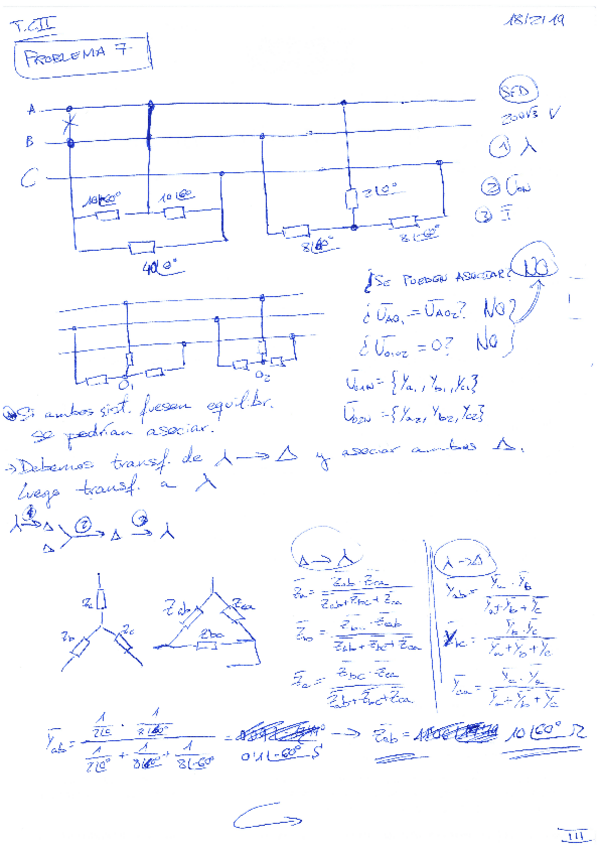 T.C.II
18/2/19
PROBLEMA 7.
A
B
C
SFD
200√3 V
① λ
② U̅ON
③ I̅
10∠60° 10∠60
40∠0°
2∠0°
8∠60° 8∠60°
¿SE PUEDEN ASOCIAR? NO
¿U̅AO1 = U̅AO2? NO
¿U̅O1O2 = 0? NO
O1 O2
U̅O1N = {Ya1, Yb1, Yc1}
U̅O2N = {Ya2, Yb2, Yc2}
Si ambos sist. fuesen equilibr.
se podrían asociar.
→ Debemos transf. de λ → Δ y asociar ambos Δ.
luego transf. a λ
λ ① → Δ
Δ ② → Δ ③ → λ
Δ → λ
λ → Δ
Za Zb Zc
Zab Zca Zbc
Z̅a = Z̅ab · Z̅ca / Z̅ab + Z̅bc + Z̅ca
Y̅ab = Y̅a · Y̅b / Y̅a + Y̅b + Y̅c
Z̅b = Z̅bc · Z̅ab / Z̅ab + Z̅bc + Z̅ca
Y̅bc = Y̅b · Y̅c / Y̅a + Y̅b + Y̅c
Z̅c = Z̅bc · Z̅ca / Z̅ab + Z̅bc + Z̅ca
Y̅ca = Y̅c · Y̅a / Y̅a + Y̅b + Y̅c
Y̅ab = 1/2∠0° · 1/8∠60° / 1/2∠0° + 1/8∠60° + 1/8∠60° = 0'1∠-60° S → Z̅ab = 10∠60° Ω
III